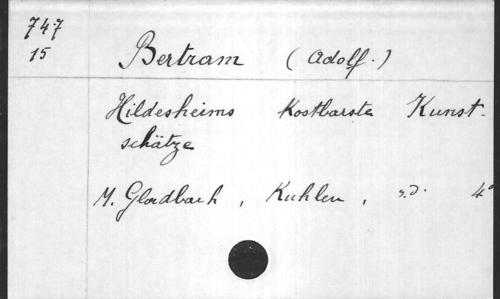 747
15
Bertram (Adolf.)
Hildesheims Kostbarste Kunst-
schätze
M. Gladbach, Kuhlen, s.d. 4°